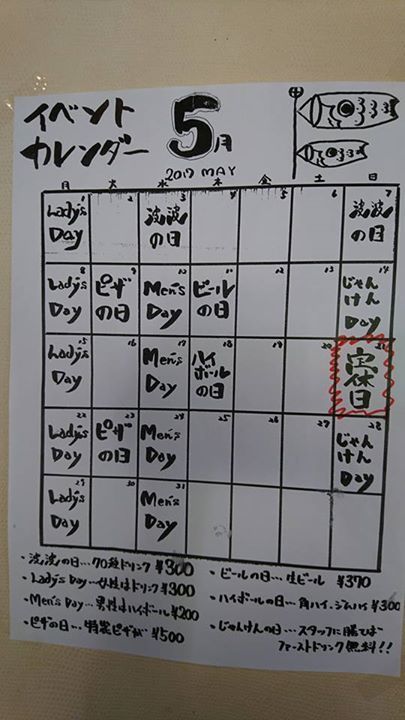 イベント
カレンダー
5月
2017 MAY
月 火 水 木 金 土 日
1 2 3 4 5 6 7
Lady's Day
波波の日
波波の日
8 9 10 11 12 13 14
Lady's Day
ピザの日
Men's Day
ビールの日
じゃんけん Day
15 16 17 18 19 20 21
Lady's Day
Men's Day
ハイボールの日
定休日
22 23 24 25 26 27 28
Lady's Day
ピザの日
Men's Day
じゃんけん Day
29 30 31
Lady's Day
Men's Day
・波波の日…70種ドリンク ¥300
・Lady's Day…女性はドリンク¥300
・Men's Day…男性はハイボール¥200
・ピザの日…特製ピザが ¥500
・ビールの日…生ビール ¥370
・ハイボールの日…角ハイ、ジムハイ ¥300
・じゃんけんの日…スタッフに勝てば
ファーストドリンク無料!!